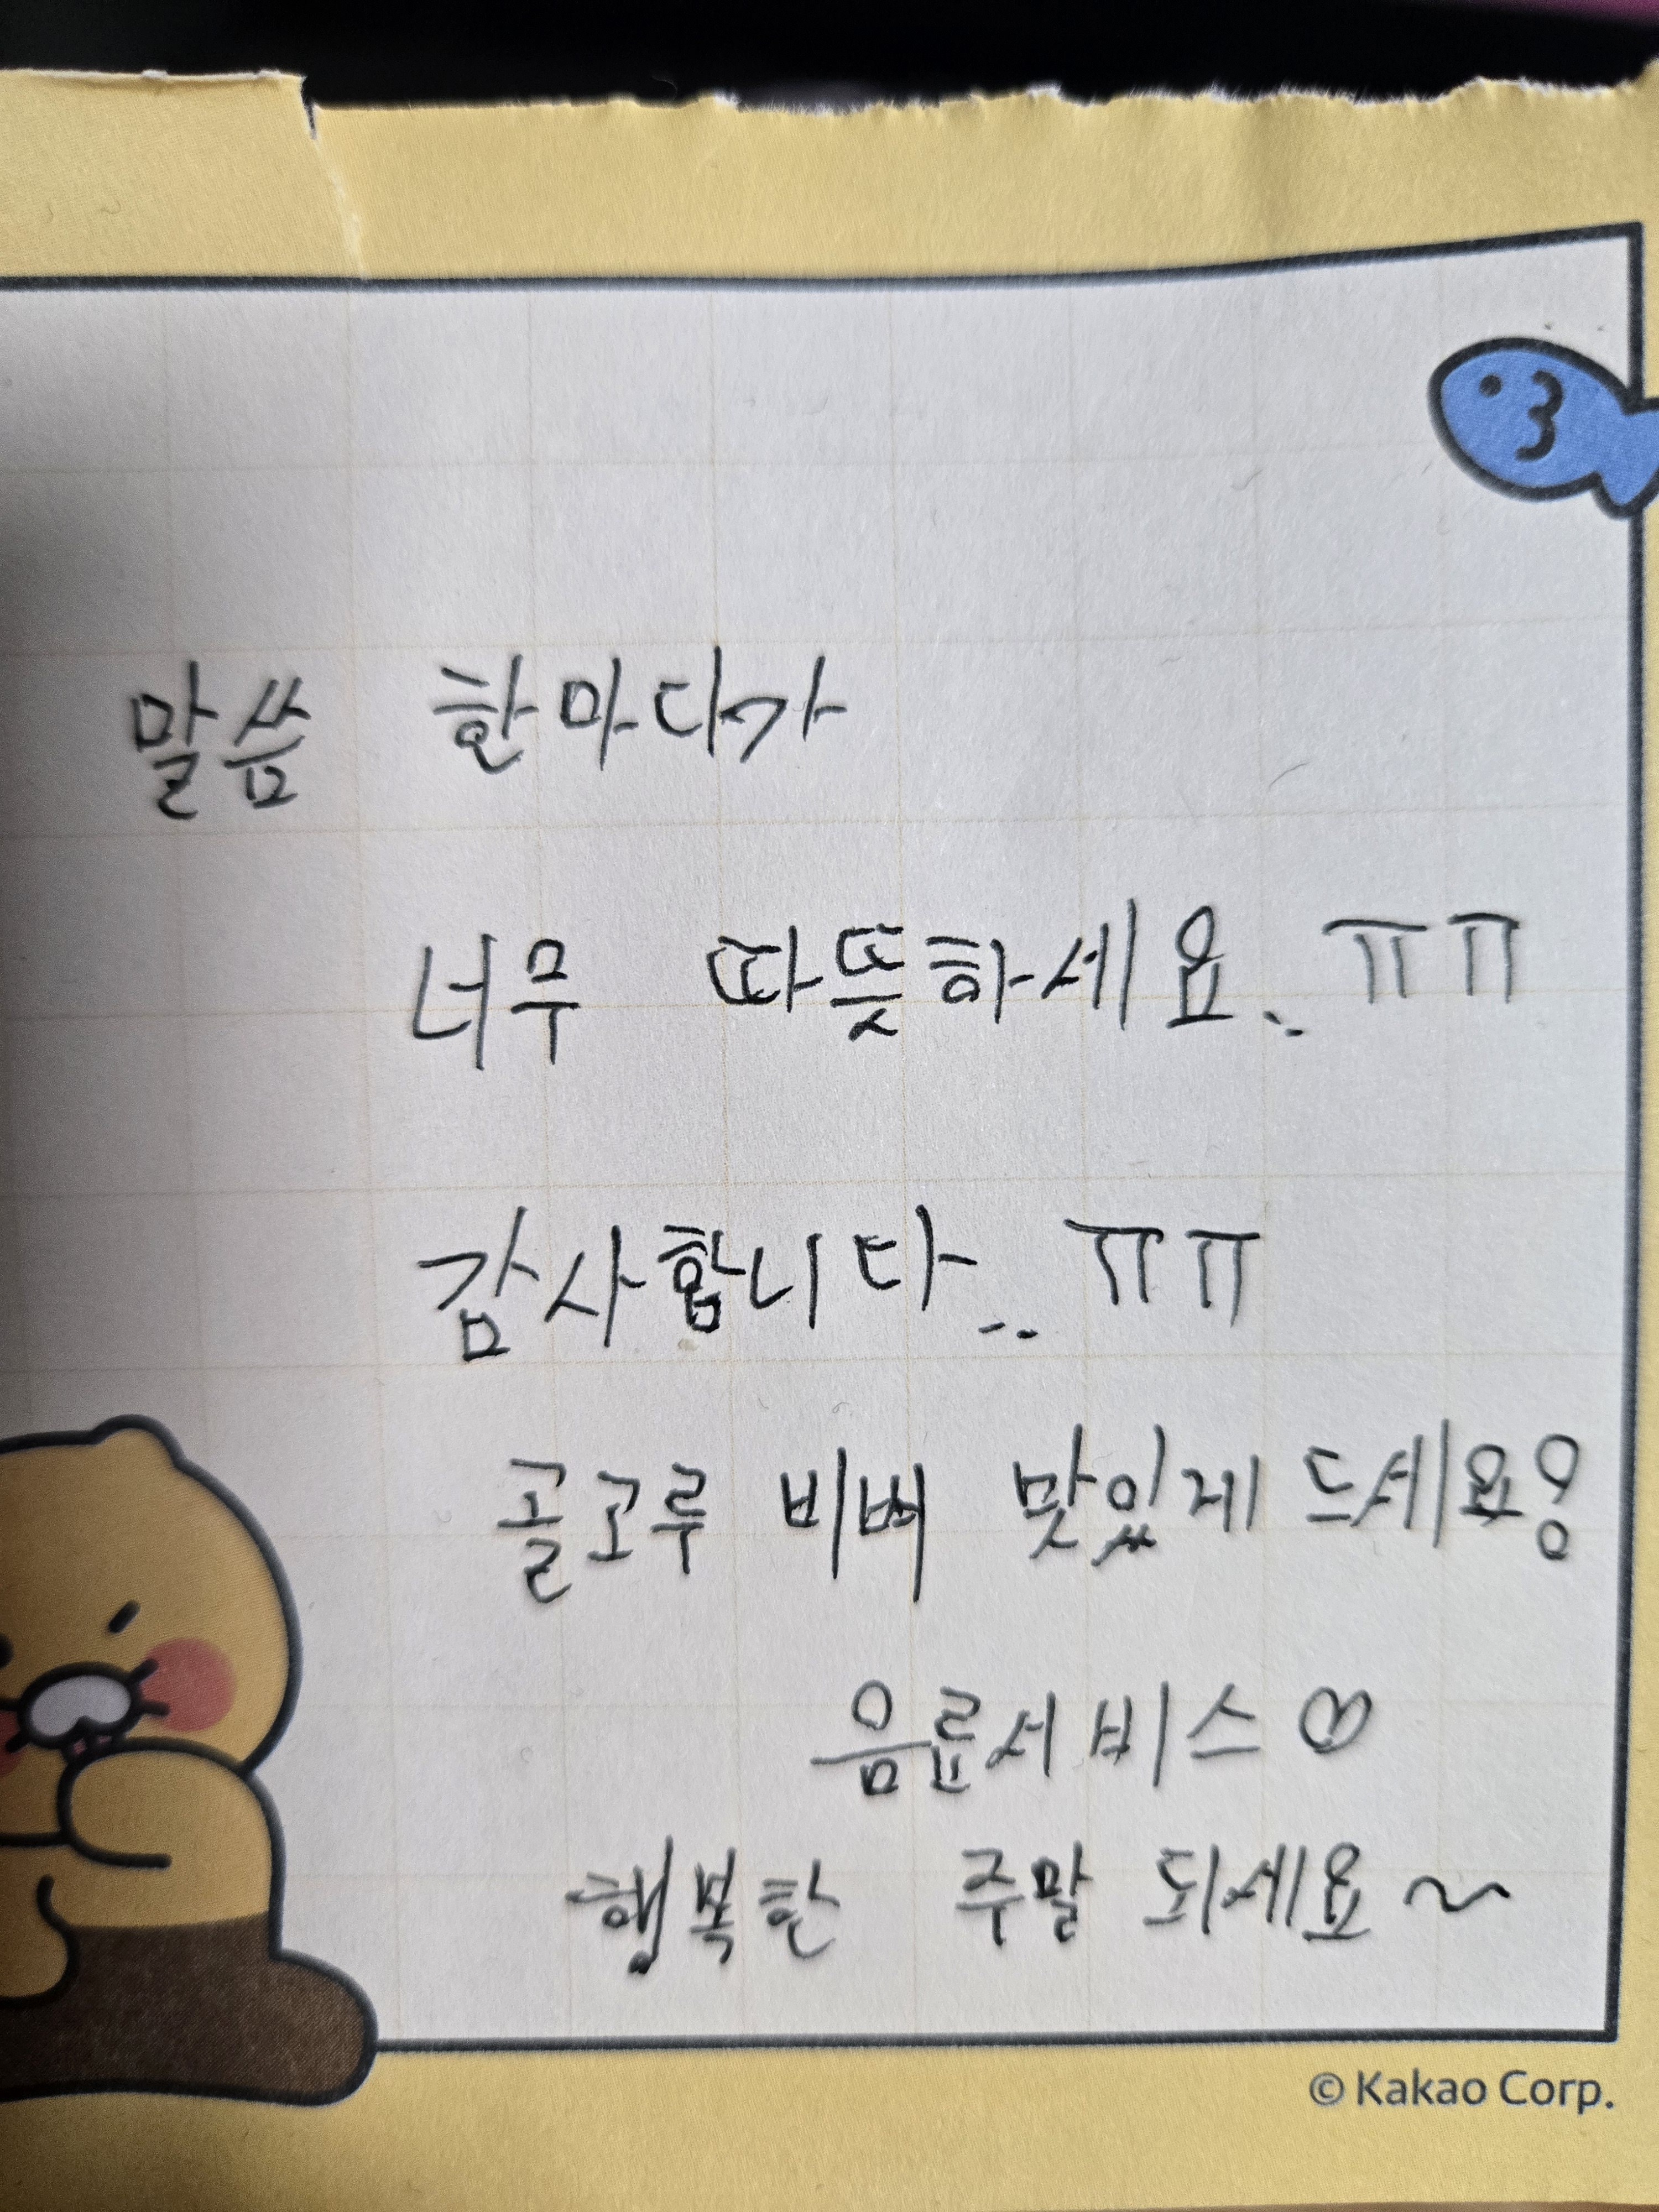 말씀 한마디가
너무 따뜻하세요.. ㅠㅠ
감사합니다.. ㅠㅠ
골고루 비벼 맛있게 드세요용
음료서비스♡
행복한 주말 되세요~
© Kakao Corp.